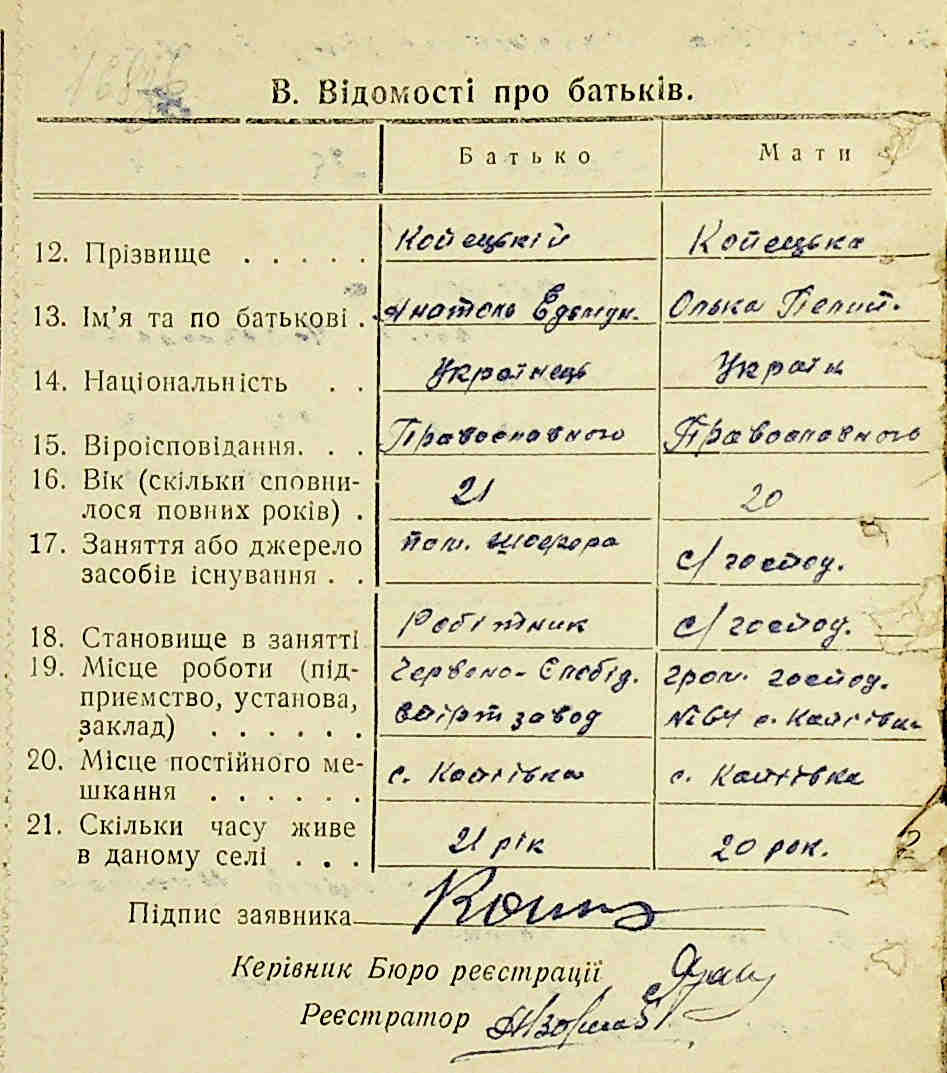 В. Відомості про батьків.
Батько Мати
12. Прізвище . . . . . Копецькій Копецька
13. Ім'я та по батькові . Анатоль Едьмун. Олька Пелип.
14. Національність . . Українець Україн
15. Віроісповідання. . . Православного Православного
16. Вік (скільки сповни-
лося повних років) . 21 20
17. Заняття або джерело пом. шофера
засобів існування . . с/господ.
18. Становище в занятті Робітник с/господ.
19. Місце роботи (під- Червоно-Слобід. гром. господ.
приємство, установа, спірт завод №64
заклад) . . . . . .
20. Місце постійного ме-
шкання . . . . . . с. с.
21. Скільки часу живе
в даному селі . . . 21 рік 20 рок. 2
Підпис заявника
Керівник Бюро реєстрації
Реєстратор